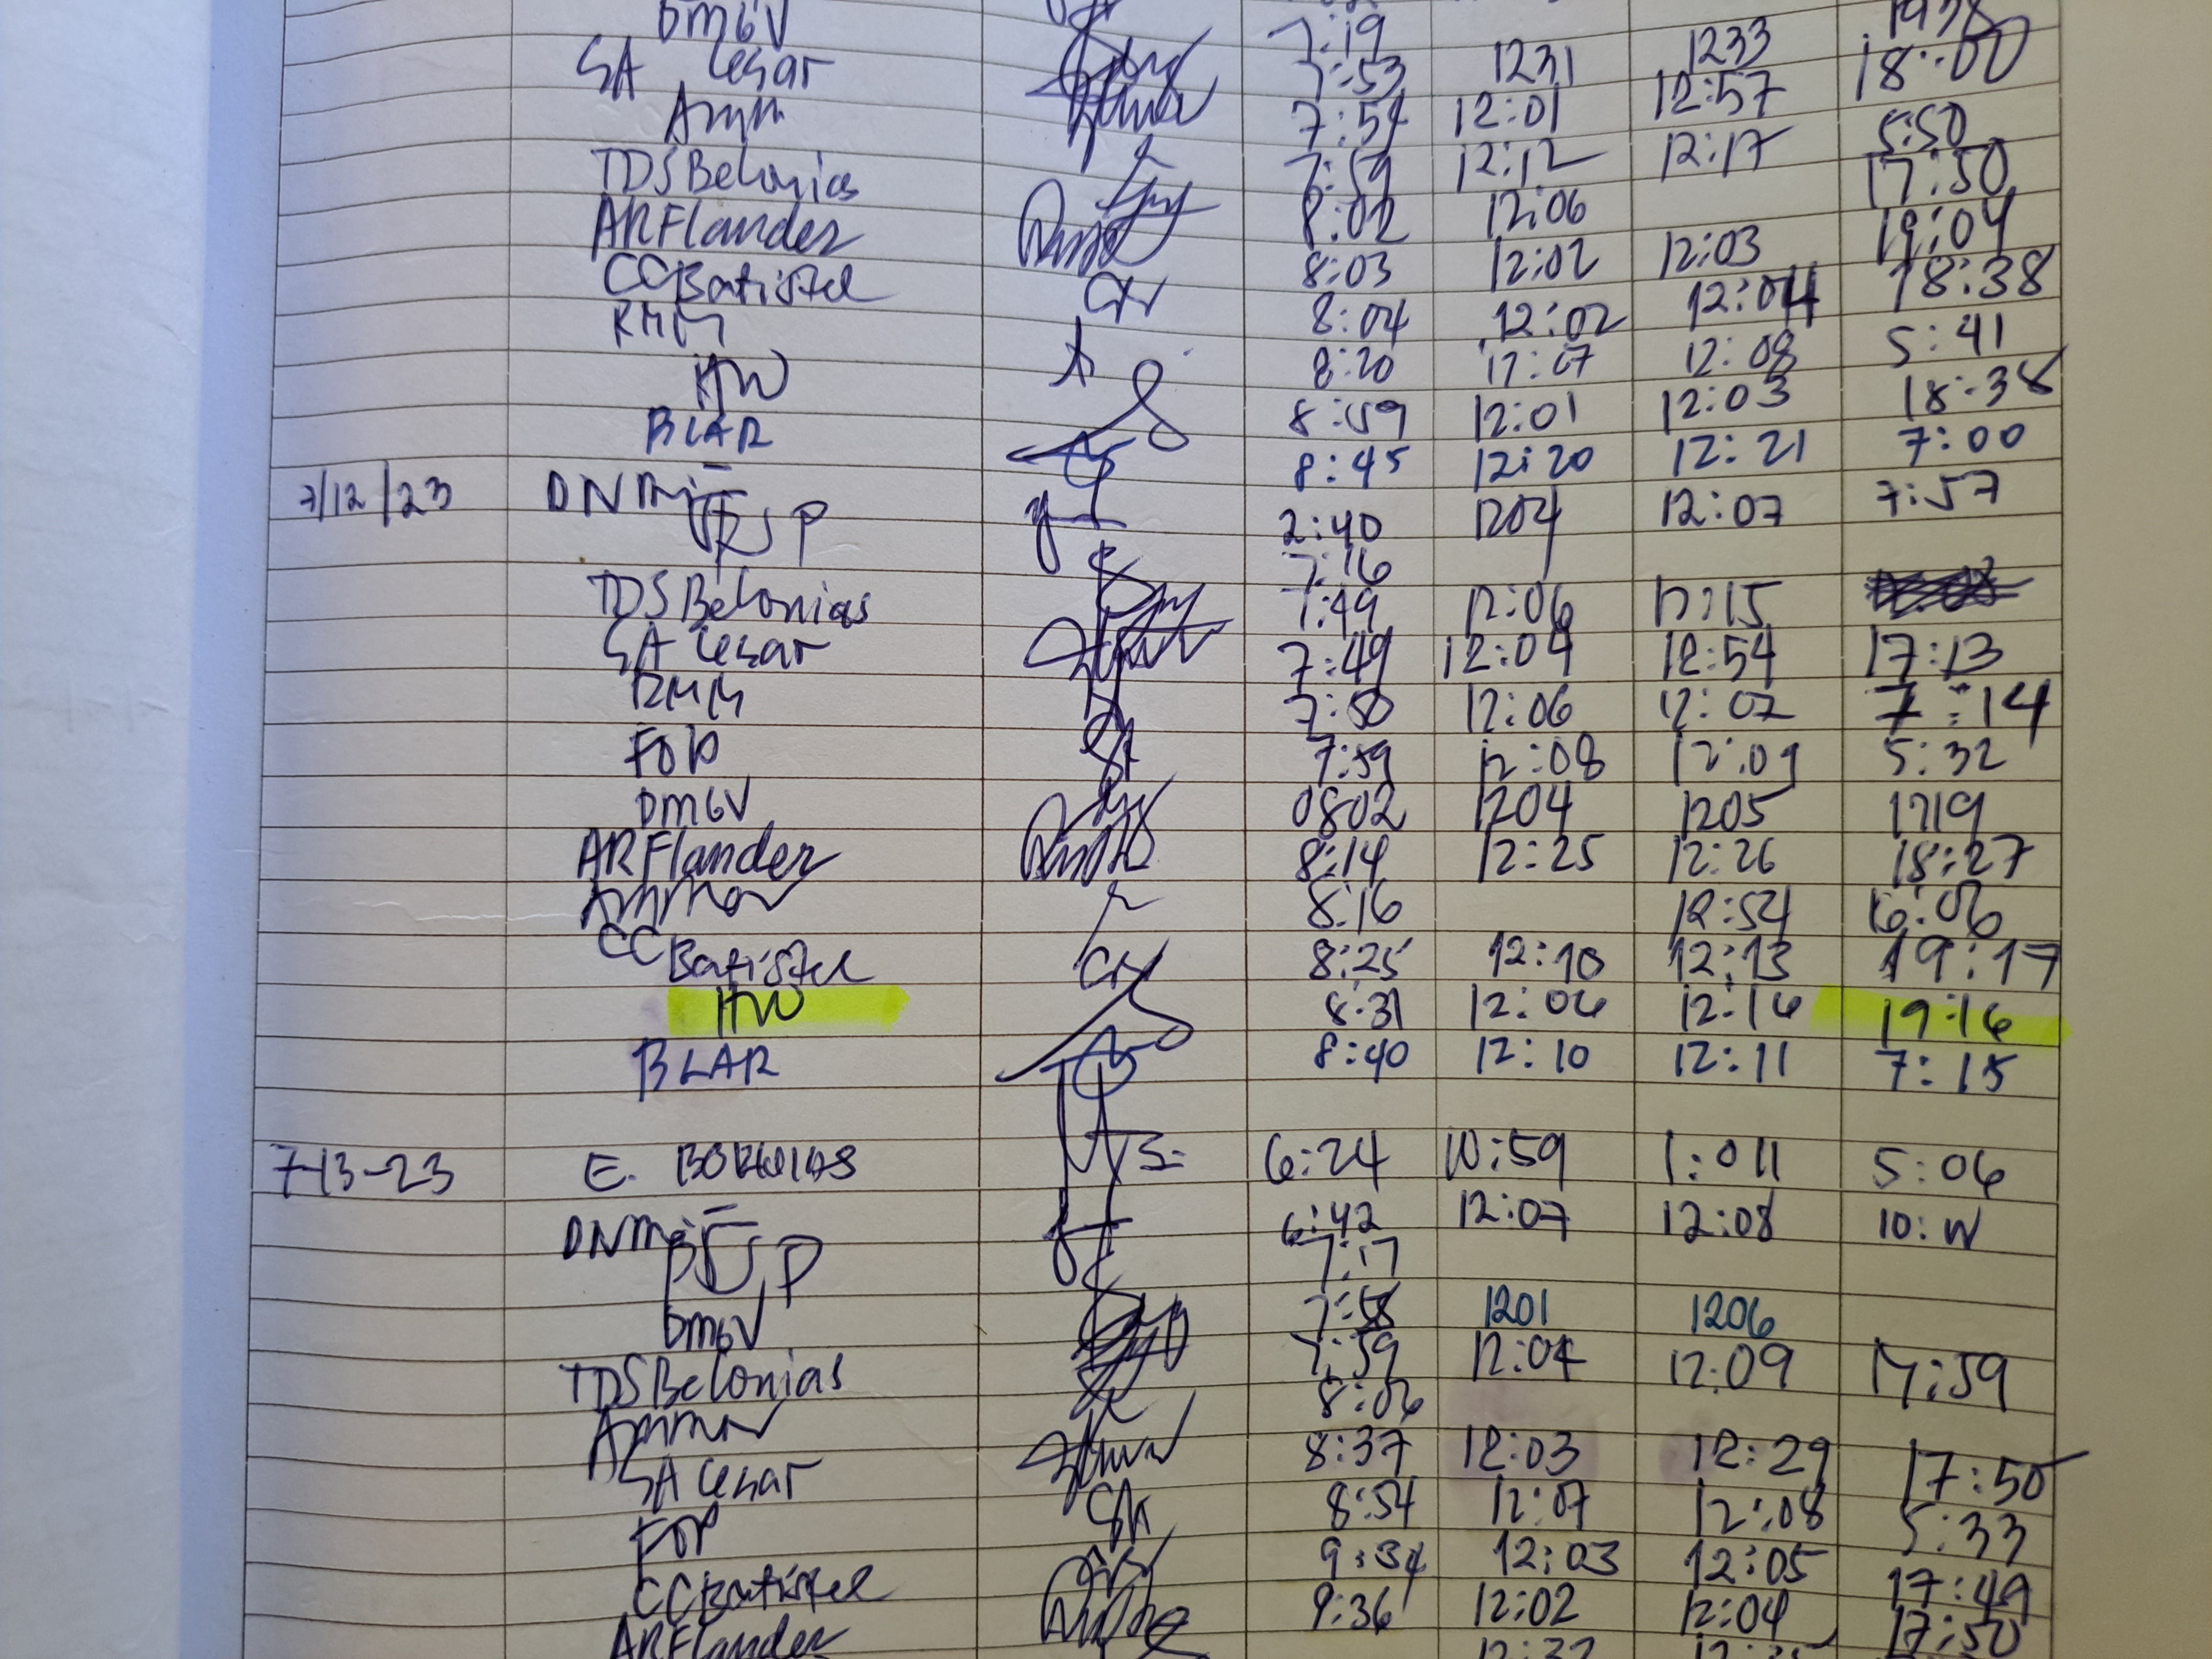 DMGV 7:19 1231 1233 1938
SA Cesar 7:53 12:01 12:57 18:00
Amm 7:54 12:12 12:17 5:50
TDSBelonias 7:59 12:06 17:50
ARFlander 8:02 12:02 12:03 19:04
CCBatistel 8:03 12:02 12:04 18:38
RMM 8:04 12:07 12:08 5:41
HW 8:20 12:01 12:03 18:38
BLAR 8:59 12:20 12:21 7:00
7/12/23 8:45 1204 12:07 7:57
2:40
JP 7:16
TDSBelonias 7:49 12:06 12:15
SA Cesar 7:49 12:04 12:54 17:13
RMM 7:50 12:06 12:07 7:14
FOP 7:59 12:08 12:09 5:32
DMGV 0802 1204 1205 1719
ARFlander 8:14 12:25 12:26 18:27
8:16 12:54 6:06
CCBatistel 8:25 12:10 12:13 19:17
HW 8:31 12:06 12:16 19:16
BLAR 8:40 12:10 12:11 7:15
7-13-23 E. 6:24 10:59 5:06
6:42 12:07 12:08
7:17
DMGV 7:58 1201 1206
TDSBelonias 7:59 12:04 12:09 17:59
8:06
SA Cesar 8:37 12:03 12:29 17:50
FOP 8:54 12:07 12:08 5:33
CCBatistel 9:34 12:03 12:05 17:49
ARFlander 9:36 12:02 12:04 17:50